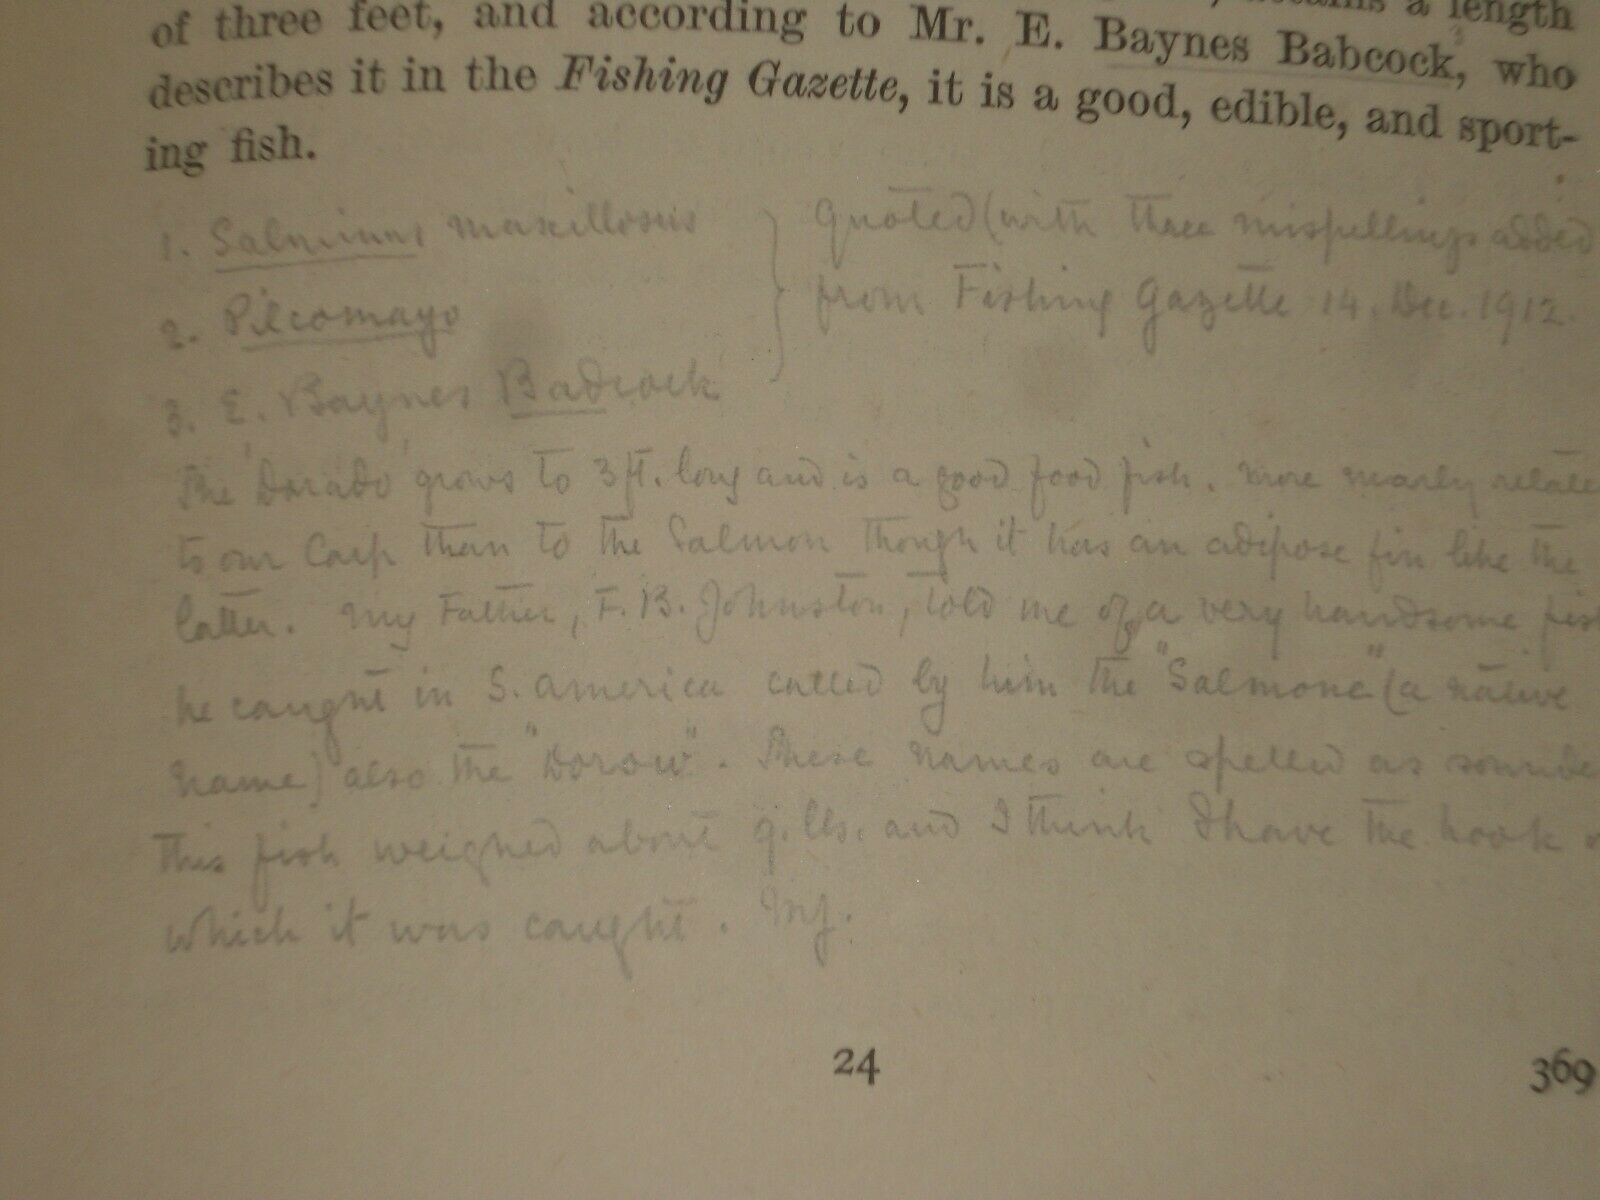 a length
of three feet, and according to Mr. E. Baynes Babcock, who
describes it in the Fishing Gazette, it is a good, edible, and sport-
ing fish.
1. Salminus maxillosus } Quoted (with three misspellings added
2. Pilcomayo from Fishing Gazette 14. Dec. 1912.
3. E. Baynes Badcock
The 'Dorado' grows to 3 ft. long and is a good food fish. More nearly relate
to our Carp than to the Salmon though it has an adipose fin like the
latter. My Father, F. B. Johnston, told me of a very handsome fis
he caught in S. America called by him the "Salmone" (a native
name) also the "Dorow". These names are spelled as sounde
This fish weighed about 9. lbs. and I think I have the hook o
which it was caught. MJ.
24
369